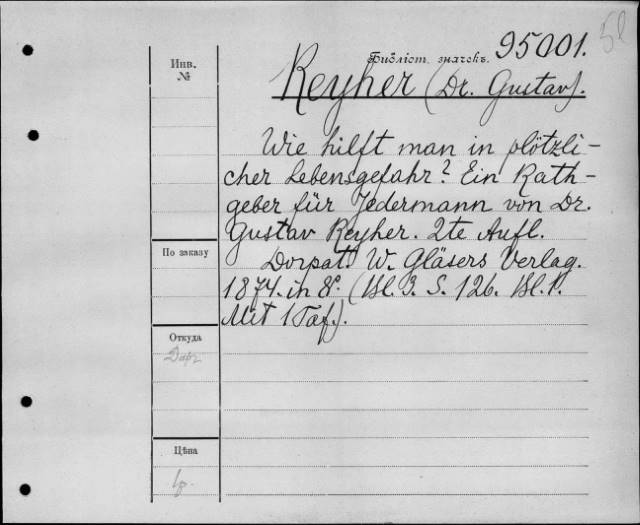 Библіот. значекъ. 95001. 51
Инв. №
Reyher (Dr. Gustav).
Wie hilft man in plötzli-
cher Lebensgefahr? Ein Rath-
geber für Jedermann von Dr.
Gustav Reyher. 2te Aufl.
По заказу
Dorpat. W. Gläsers Verlag.
1874. in 8º. (Bl. 3. S. 126. Bl. 1.
Mit 1 Taf.).
Откуда
Дарг
Цѣна